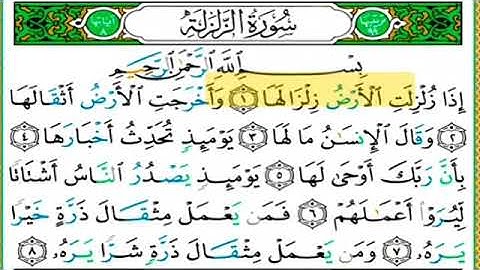 ترتيبها ٩٩ سُورَةُ الزَّلْزَلَة آياتها ٨
بِسْمِ اللَّهِ الرَّحْمَٰنِ الرَّحِيمِ
إِذَا زُلْزِلَتِ الْأَرْضُ زِلْزَالَهَا ١ وَأَخْرَجَتِ الْأَرْضُ أَثْقَالَهَا
٢ وَقَالَ الْإِنسَٰنُ مَا لَهَا ٣ يَوْمَئِذٍ تُحَدِّثُ أَخْبَارَهَا ٤
بِأَنَّ رَبَّكَ أَوْحَىٰ لَهَا ٥ يَوْمَئِذٍ يَصْدُرُ النَّاسُ أَشْتَاتًا
لِّيُرَوْا أَعْمَٰلَهُمْ ٦ فَمَن يَعْمَلْ مِثْقَالَ ذَرَّةٍ خَيْرًا
يَرَهُۥ ٧ وَمَن يَعْمَلْ مِثْقَالَ ذَرَّةٍ شَرًّا يَرَهُۥ ٨